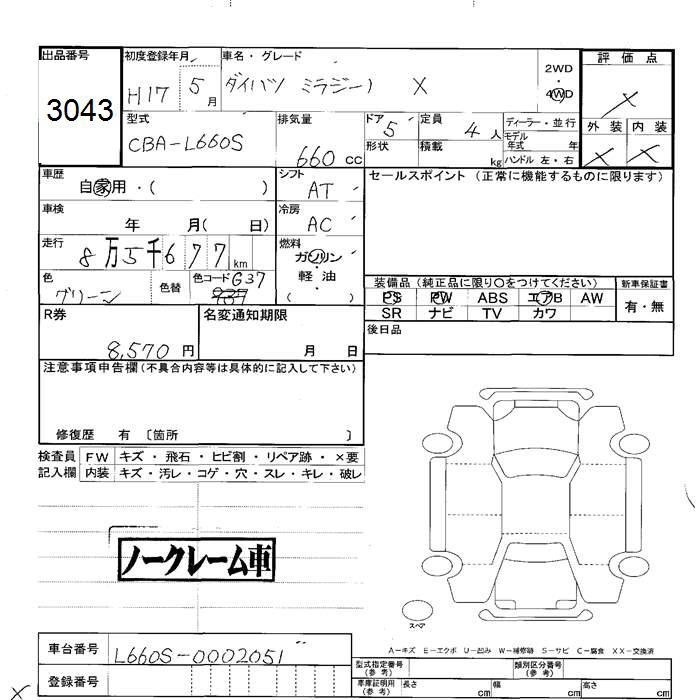 出品番号 初度登録年月 車名・グレード 評価点
3043 H17 5月 ダイハツ ミラジーノ X 2WD 4WD
外装 内装
型式 排気量 ドア 定員 ディーラー・並行
CBA-L660S 660cc 5 4人 モデル年式 年
形状 積載 kg ハンドル 左・右
車歴 シフト セールスポイント (正常に機能するものに限ります)
自家用・( ) AT
車検 冷房
年 月( 日) AC
走行 燃料
8万5千677km ガソリン
軽・油
色 色替 色コード G37 ( )
グリーン
装備品 (純正品に限り○をつけてください) 新車保証書
PS PW ABS エアB AW 有・無
SR ナビ TV カワ
R券 名変通知期限 後日品
8,570円 月 日
注意事項申告欄(不具合内容等は具体的に記入して下さい)
修復歴 有 〔箇所 〕
検査員 FW キズ・飛石・ヒビ割・リペア跡・×要
記入欄 内装 キズ・汚レ・コゲ・穴・スレ・キレ・破レ
ノークレーム車
スペア
A-キズ E-エクボ U-凹み W-補修跡 S-サビ C-腐食 XX-交換済
車台番号 L660S-0002051 型式指定番号(参考) 類別区分番号(参考)
登録番号 車庫証明用(参考) 長さ cm 幅 cm 高さ cm